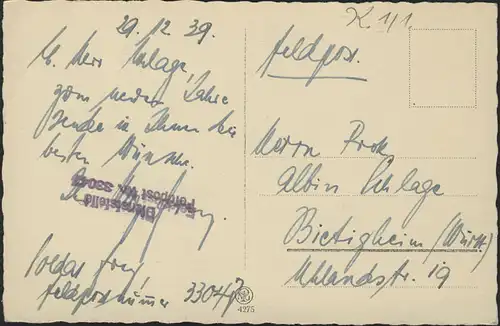 29.12.39.
K 41
Feldpost.
L. Herr Schlage,
zum neuen Jahre
sende ich Ihnen die
besten Wünsche.
Dienststelle
Feldpost Nr. 33047
Soldat Frey
Feldpostnummer 33047
Herrn
Albin Schlage
Bietigheim (Württ.)
Uhlandstr. 19
4275